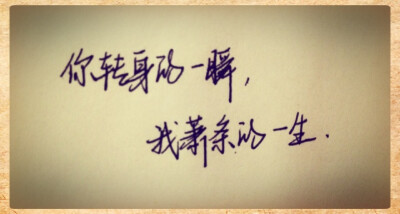 你转身的一瞬，
我萧条的一生.